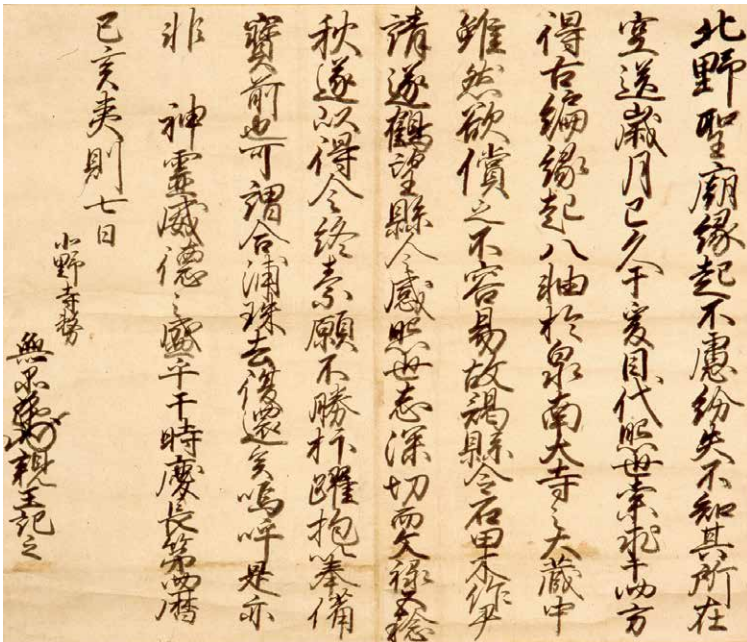 北野聖廟縁起不慮紛失不知其所在
空送歳月已久于爰目代照世索求乎四方
得古編縁起八軸於泉南大寺之大蔵中
雖然欲償之不容易故謁縣令石田木作尹
請遂鶴望縣令感照世志深切而文禄五稔
秋遂以得令終素願不勝抃躍抱奉備
寶前也可謂合浦珠去復還矣嗚呼是亦
非 神霊威徳之盛乎干時慶長第四暦
己亥夷則七日
北野寺務
親王記之